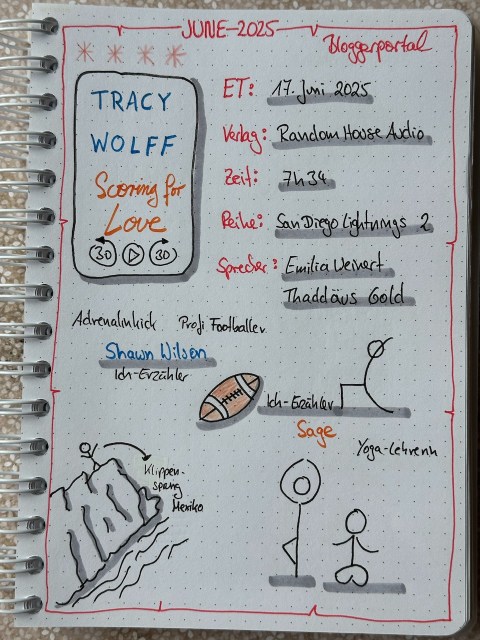 JUNE-2025
Bloggerportal
TRACY
WOLFF
Scoring for
Love
30 30
ET: 17. Juni 2025
Verlag: Random House Audio
Zeit: 7h34
Reihe: San Diego Lightnings 2
Sprecher: Emilia Weinert
Thaddäus Gold
Adrenalinkick Profi Footballer
Shawn Wilson
Ich-Erzähler
Ich-Erzähler
Sage
Yoga-Lehrerin
Klippen-
sprung
Mexiko